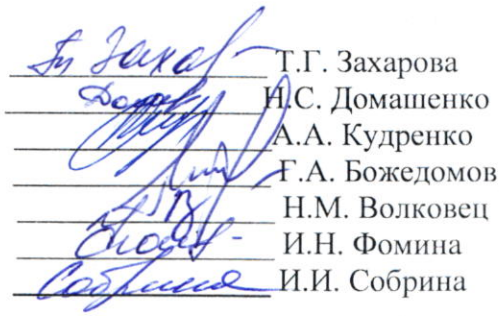 Т.Г. Захарова
Н.С. Домашенко
А.А. Кудренко
Г.А. Божедомов
Н.М. Волковец
И.Н. Фомина
Собрина И.И. Собрина